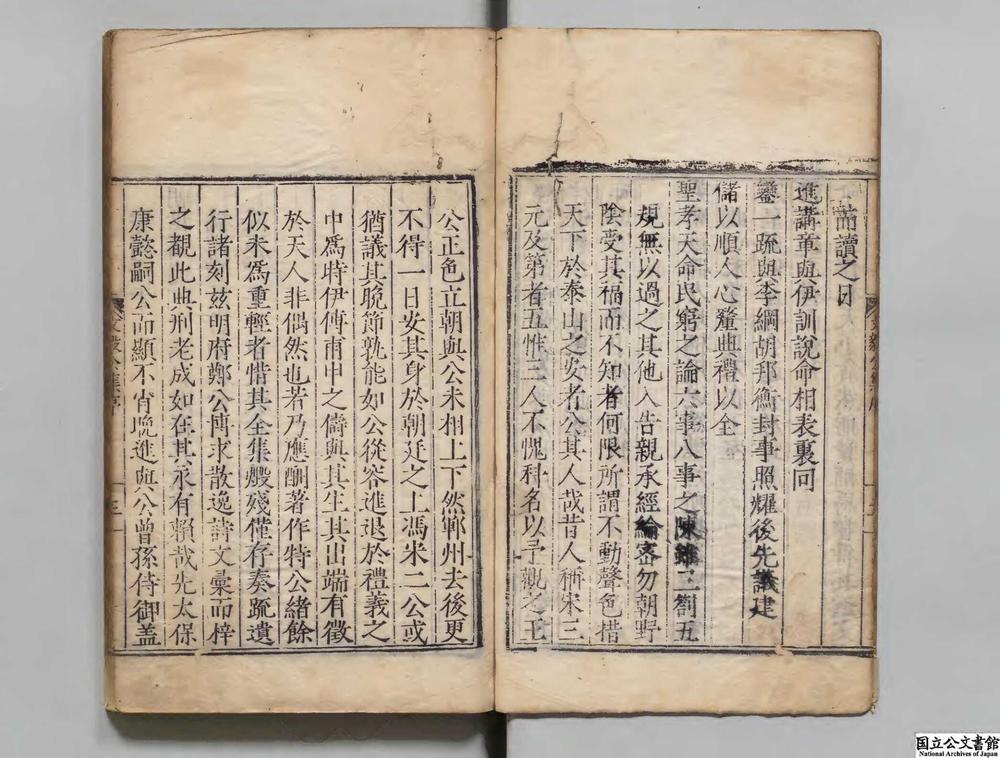 誦讀之日
進講章與伊訓說命相表裏回
鑾一疏與李綱胡邦衡封事照耀後先議建
儲以順人心釐典禮以全
聖孝天命民窮之論六事八事之陳雖三劄五
規無以過之其他入告親承經綸密勿朝野
陰受其福而不知者何限所謂不動聲色措
天下於泰山之安者公其人哉昔人稱宋三
元及第者五惟三人不愧科名以予觀之王
公正色立朝與公未相上下然鄆州去後更
不得一日安其身於朝廷之上馮宋二公或
猶議其晚節孰能如公從容進退於禮義之
中爲時伊傅甫申之儔與其生其出端有徵
於天人非偶然也若乃應酬著作特公緒餘
似未爲重輕者惜其全集殘僅存奏疏遺
行諸刻茲明府鄭公博求散逸詩文彙而梓
之覩此典刑老成如在其永有賴哉先太保
康懿嗣公而顯不肖晚進與公曾孫侍御盖
三
國立公文書館
National Archives of Japan